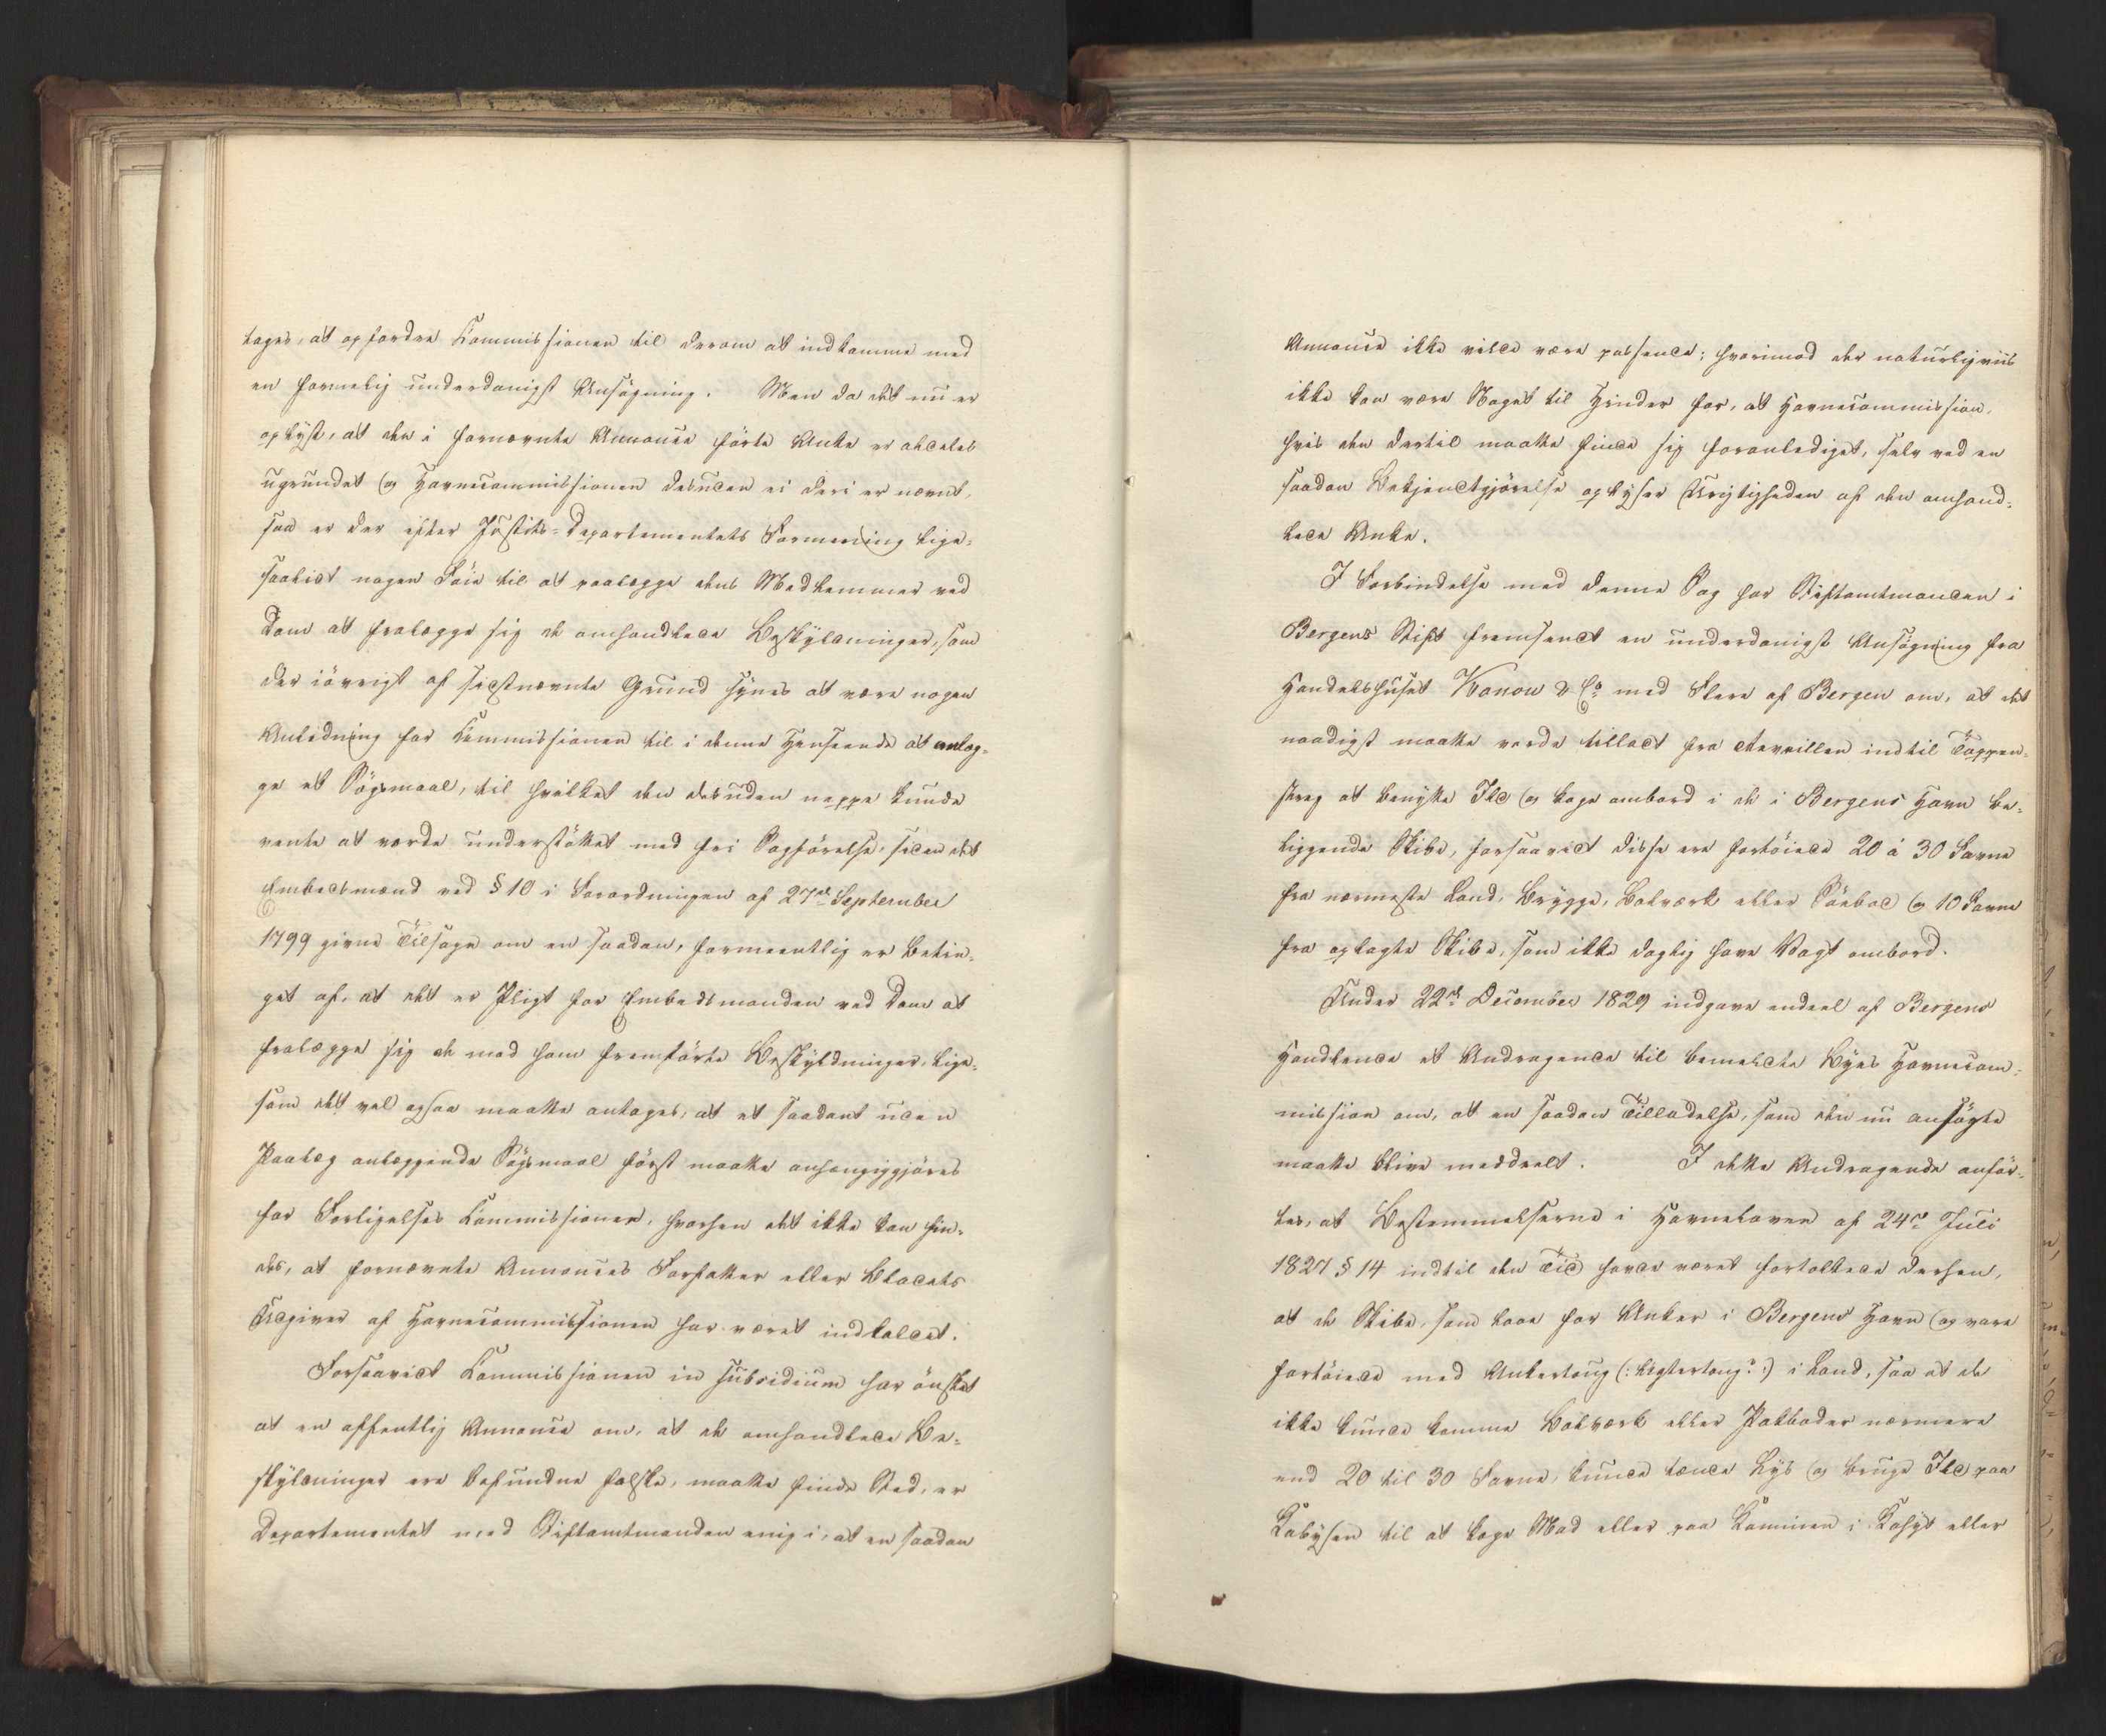 tages, at opfordre Commissionen til derom at indkomme med
en formelig underdanigst Ansøgning. Men da det nu er
oplyst, at den i fornævnte Annonce førte Anke er aldeles
ugrundet og Havnecommissionen desuden ei deri er nævnt,
saa er der efter Justits-Departementets Formening lige-
saalidt nogen Føie til at paalægge dens Medlemmer ved
Dom at fralægge sig de omhandlede Beskyldninger, som
der iøvrigt af sidstnævnte Grund synes at være nogen
Anledning for Commissionen til i denne Henseende at anlæg-
ge et Søgsmaal, til hvilket den desuden neppe kunde
vente at vorde understøttet med fri Sagførelse, siden det
Embedsmænd ved § 10 i Forordningen af 27de September
1799 givne Tilsagn om en saadan, formeentlig er betin-
get af, at det er Pligt for Embedsmanden ved Dom at
fralægge sig de mod ham fremførte Beskyldninger, lige-
som det vel ogsaa maatte antages, at et saadant uden
Paalæg anlæggende Søgsmaal først maatte anhængiggjøres
for Forligelses Commissionen, hvorhen det ikke kan fin-
des, at fornævnte Annonces Forfatter eller Bladets
Udgiver af Havnecommissionen har været indkaldet.
Forsaavidt Commissionen in subsidium har ønsket
at en offentlig Annonce om, at de omhandlede Be-
skyldninger ere befundne falske, maatte finde Sted, er
Departementet med Stiftamtmanden enig i, at en saadan
Annonce ikke vilde være passende; hvorimod der naturligviis
ikke kan være Noget til Hinder for, at Havnecommission,
hvis den dertil maatte finde sig foranlediget, selv ved en
saadan Bekjendtgjørelse oplyser Urigtigheden af den omhand-
lede Anke.
I Forbindelse med denne Sag har Stiftamtmanden i
Bergens Stift fremsendt en underdanigst Ansøgning fra
Handelshuset Konow & Co med Flere af Bergen om, at det
naadigst maatte vorde tilladt fra Reveillen indtil Tappen-
streg at benytte Ild og koge ombord i de i Bergens Havn be-
liggende Skibe, forsaavidt disse ere fortøiede 20 à 30 Favne
fra nærmeste Land, Brygge, Bolværk eller Søebod og 10 Favne
fra oplagte Skibe, som ikke daglig have Vagt ombord.
Under 22de December 1829 indgave endeel af Bergens
Handlende et Andragende til bemeldte Byes Havnecom-
mission om, at en saadan Tilladelse, som den nu ansøgte
maatte blive meddeelt. I dette Andragende anfør-
tes, at Bestemmelserne i Havneloven af 24de Juli
1827 § 14 indtil den Tid havde været fortolkede derhen,
at de Skibe, som laae for Anker i Bergens Havn og vare
fortøiede med Ankertoug (: Agtertoug? :) i Land, saa at de
ikke kunde komme Bolværk eller Pakboder nærmere
end 20 til 30 Favne, kunde tænde Lys og bruge Ild paa
Kabysen til at koge Mad eller paa Kaminen i Kahyt eller